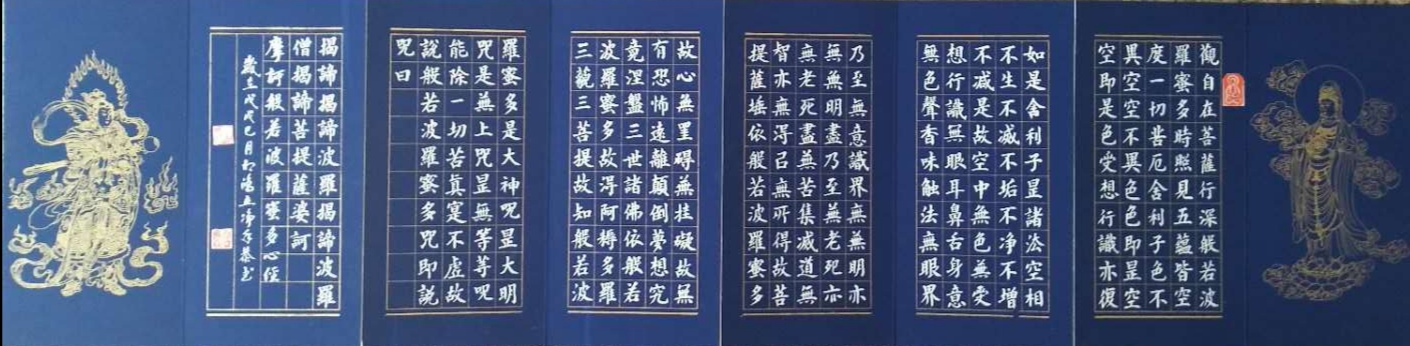 觀自在菩薩行深般若波
羅蜜多時照見五蘊皆空
度一切苦厄舍利子色不
異空空不異色色即昰空
空即是色受想行識亦復
如是舍利子昰諸法空相
不生不滅不垢不净不增
不減是故空中無色無受
想行識無眼耳鼻舌身意
無色聲香味触法無眼界
乃至無意識界無無明亦
無無明盡乃至無老死亦
無老死盡無苦集滅道無
智亦無淂已無所得故菩
提薩埵依般若波羅蜜多
故心無罣礙無挂礙故無
有恐怖遠離顛倒夢想究
竟涅盤三世諸佛依般若
波羅蜜多故淂阿耨多羅
三藐三菩提故知般若波
羅蜜多是大神咒昰大明
咒是無上咒昰無等等咒
能除一切苦真寔不虛故
說般若波羅蜜多咒即說
咒曰
揭諦揭諦波羅揭諦波羅
僧揭諦菩提薩婆訶
摩訶般若波羅蜜多心経
歲在戊戌巳月